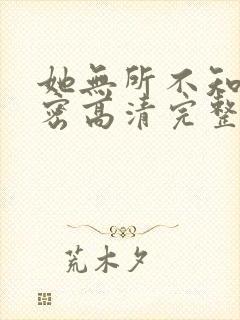 她無所不知
密高清完整
荒木夕